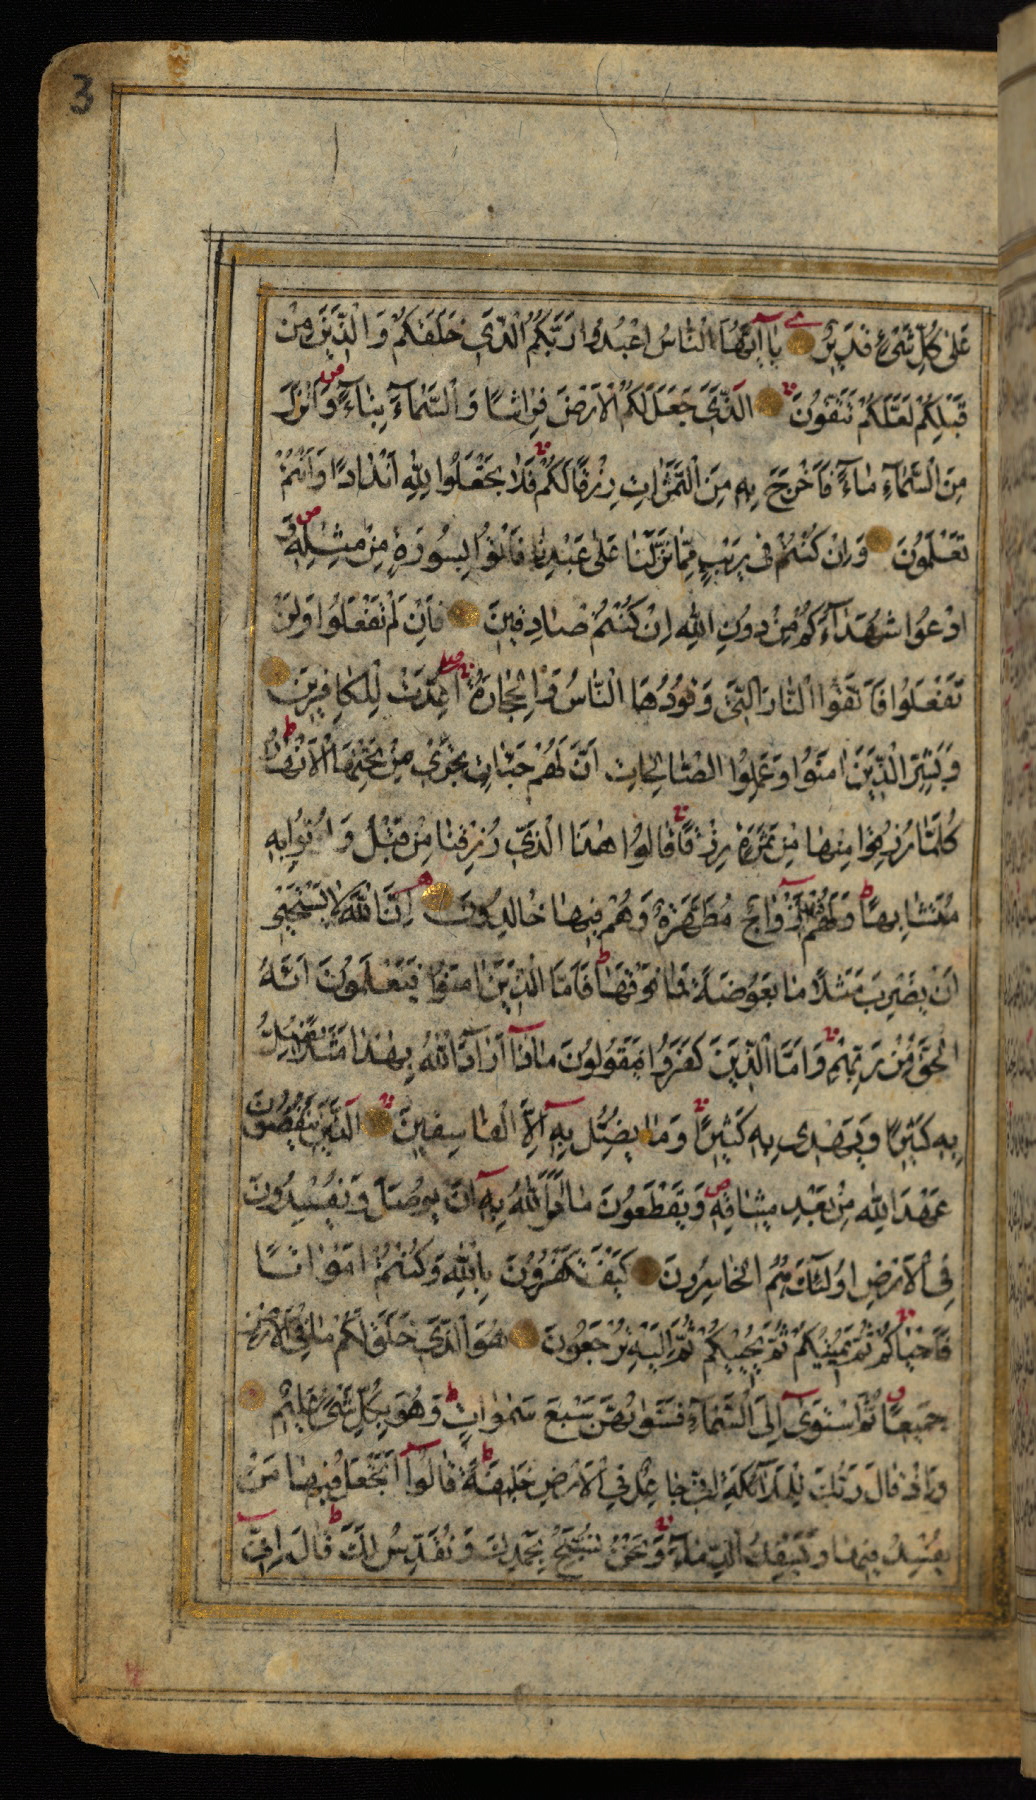 3
عَلىٰ كُلِّ شَىْءٍ قَدٖيرٌ يٰٓا اَيُّهَا النّٰاسُ اعْبُدُوا رَبَّكُمُ الَّذٖي خَلَقَكُمْ وَالَّذٖينَ مِنْ
قَبْلِكُمْ لَعَلَّكُمْ تَتَّقُونَ الَّذٖي جَعَلَ لَكُمُ الْاَرْضَ فِرٰاشًا وَالسَّمٰآءَ بِنٰآءً وَاَنْزَلَ
مِنَ السَّمٰآءِ مٰآءً فَاَخْرَجَ بِهِ مِنَ الثَّمَرٰاتِ رِزْقًا لَكُمْ فَلٰا تَجْعَلُوا لِلّٰهِ اَنْدٰادًا وَاَنْتُمْ
تَعْلَمُونَ وَاِنْ كُنْتُمْ فٖي رَيْبٍ مِمّٰا نَزَّلْنٰا عَلىٰ عَبْدِنٰا فَاْتُوا بِسُورَةٍ مِنْ مِثْلِهٖ وَ
ادْعُوا شُهَدٰآءَكُمْ مِنْ دُونِ اللّٰهِ اِنْ كُنْتُمْ صٰادِقٖينَ فَاِنْ لَمْ تَفْعَلُوا وَلَنْ
تَفْعَلُوا فَاتَّقُوا النّٰارَ الَّتٖي وَقُودُهَا النّٰاسُ وَالْحِجٰارَةُ اُعِدَّتْ لِلْكٰافِرٖينَ
وَبَشِّرِ الَّذٖينَ اٰمَنُوا وَعَمِلُوا الصّٰالِحٰاتِ اَنَّ لَهُمْ جَنّٰاتٍ تَجْرٖي مِنْ تَحْتِهَا الْاَنْهٰارُ
كُلَّمٰا رُزِقُوا مِنْهٰا مِنْ ثَمَرَةٍ رِزْقًا قٰالُوا هٰذَا الَّذٖي رُزِقْنٰا مِنْ قَبْلُ وَاُتُوا بِهٖ
مُتَشٰابِهًا وَلَهُمْ فٖيهٰا اَزْوٰاجٌ مُطَهَّرَةٌ وَهُمْ فٖيهٰا خٰالِدُونَ اِنَّ اللّٰهَ لٰا يَسْتَحْيٖ
اَنْ يَضْرِبَ مَثَلًا مٰا بَعُوضَةً فَمٰا فَوْقَهٰا فَاَمَّا الَّذٖينَ اٰمَنُوا فَيَعْلَمُونَ اَنَّهُ
الْحَقُّ مِنْ رَبِّهِمْ وَاَمَّا الَّذٖينَ كَفَرُوا فَيَقُولُونَ مٰاذٰآ اَرٰادَ اللّٰهُ بِهٰذٰا مَثَلًا يُضِلُّ
بِهٖ كَثٖيرًا وَيَهْدٖي بِهٖ كَثٖيرًا وَمٰا يُضِلُّ بِهٖٓ اِلَّا الْفٰاسِقٖينَ الَّذٖينَ يَنْقُضُونَ
عَهْدَ اللّٰهِ مِنْ بَعْدِ مٖيثٰاقِهٖ وَيَقْطَعُونَ مٰآ اَمَرَ اللّٰهُ بِهٖٓ اَنْ يُوصَلَ وَيُفْسِدُونَ
فِي الْاَرْضِ اُولٰئِكَ هُمُ الْخٰاسِرُونَ كَيْفَ تَكْفُرُونَ بِاللّٰهِ وَكُنْتُمْ اَمْوٰاتًا
فَاَحْيٰاكُمْ ثُمَّ يُمٖيتُكُمْ ثُمَّ يُحْيٖيكُمْ ثُمَّ اِلَيْهِ تُرْجَعُونَ هُوَ الَّذٖي خَلَقَ لَكُمْ مٰا فِي الْاَرْضِ
جَمٖيعًا ثُمَّ اسْتَوىٰٓ اِلَى السَّمٰآءِ فَسَوّٰاهُنَّ سَبْعَ سَمٰوٰاتٍ وَهُوَ بِكُلِّ شَىْءٍ عَلٖيمٌ
وَاِذْ قٰالَ رَبُّكَ لِلْمَلٰآئِكَةِ اِنّٖي جٰاعِلٌ فِي الْاَرْضِ خَلٖيفَةً قٰالُوٓا اَتَجْعَلُ فٖيهٰا مَنْ
يُفْسِدُ فٖيهٰا وَيَسْفِكُ الدِّمٰآءَ وَنَحْنُ نُسَبِّحُ بِحَمْدِكَ وَنُقَدِّسُ لَكَ قٰالَ اِنّٖي